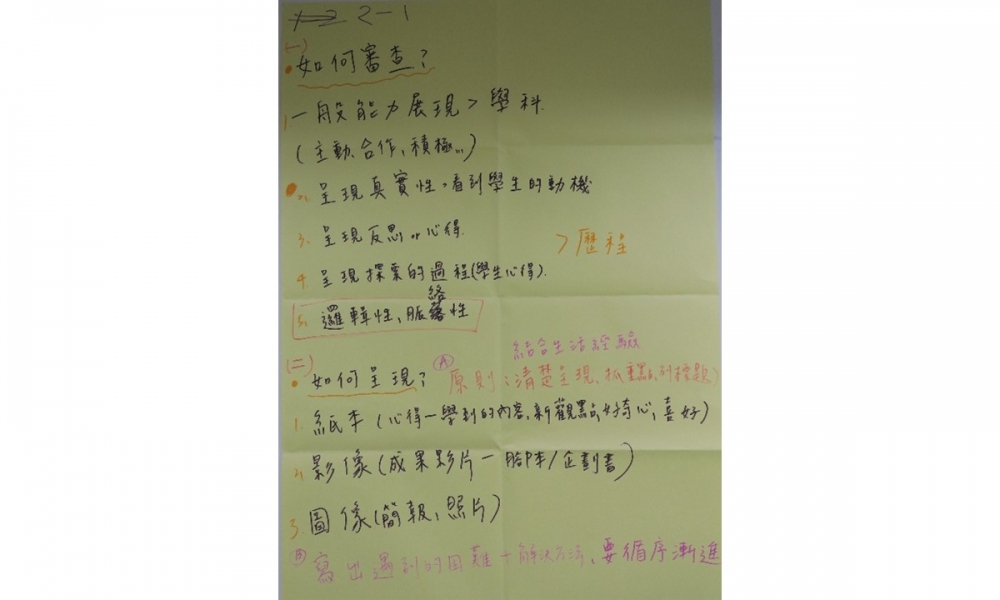 2-1
(一)
•如何審查?
1.一般能力展現>學科
(主動、合作、積極...)
•2.呈現真實性,看到學生的動機
3.呈現反思or心得.
>歷程
4.呈現探索的過程(學生心得).
5.邏輯性、脈絡性
結合生活經驗
(二)
•如何呈現? Ⓐ原則:清楚呈現、抓重點、列標題)
1.紙本(心得-學到的內容,新觀點,好奇心,喜好)
2.影像(成果影片-腳本/企劃書)
3.圖像(簡報、照片)
Ⓑ寫出遇到的困難+解決方法、要循序漸進